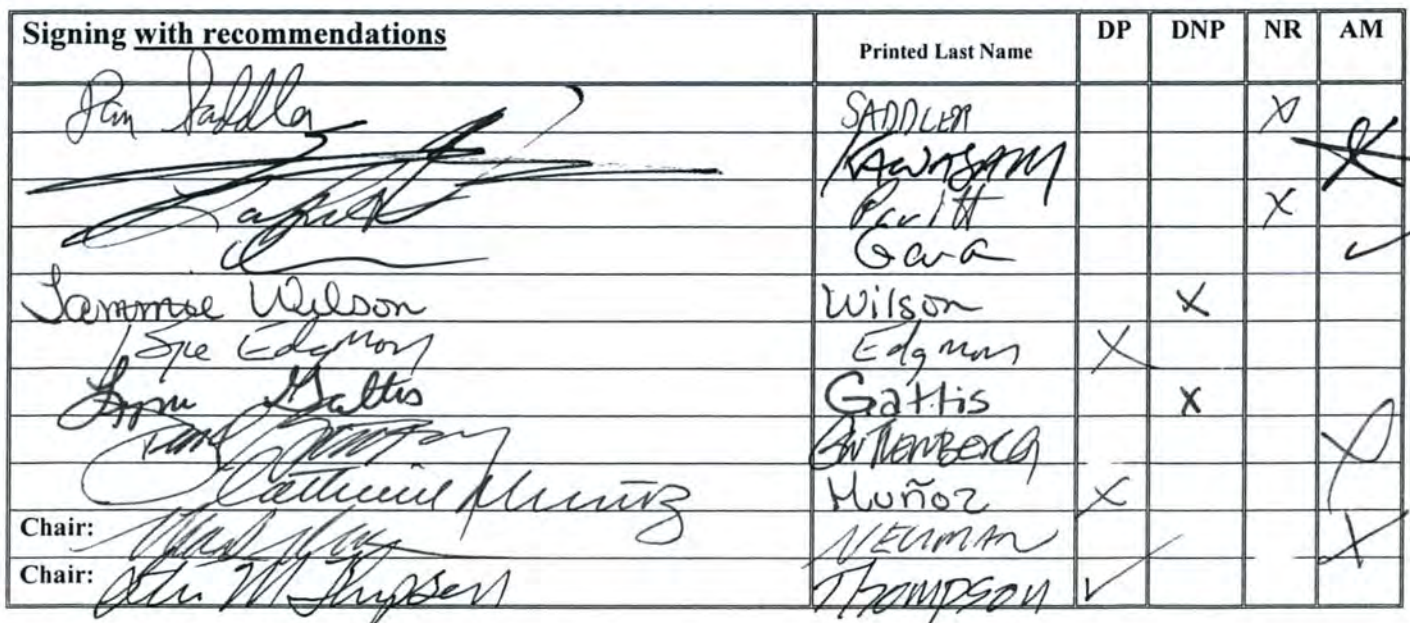 Signing with recommendations Printed Last Name DP DNP NR AM
Pam Saddler SADDLER X
KAWASAKI X
Pruitt X
Gara ✓
Tammie Wilson Wilson X
Edgmon Edgmon X
Lynn Gattis Gattis X
GUTTENBERG X
Catherine Muñoz Muñoz X
Chair: NEUMAN X
Chair: Steve M Thompson THOMPSON ✓